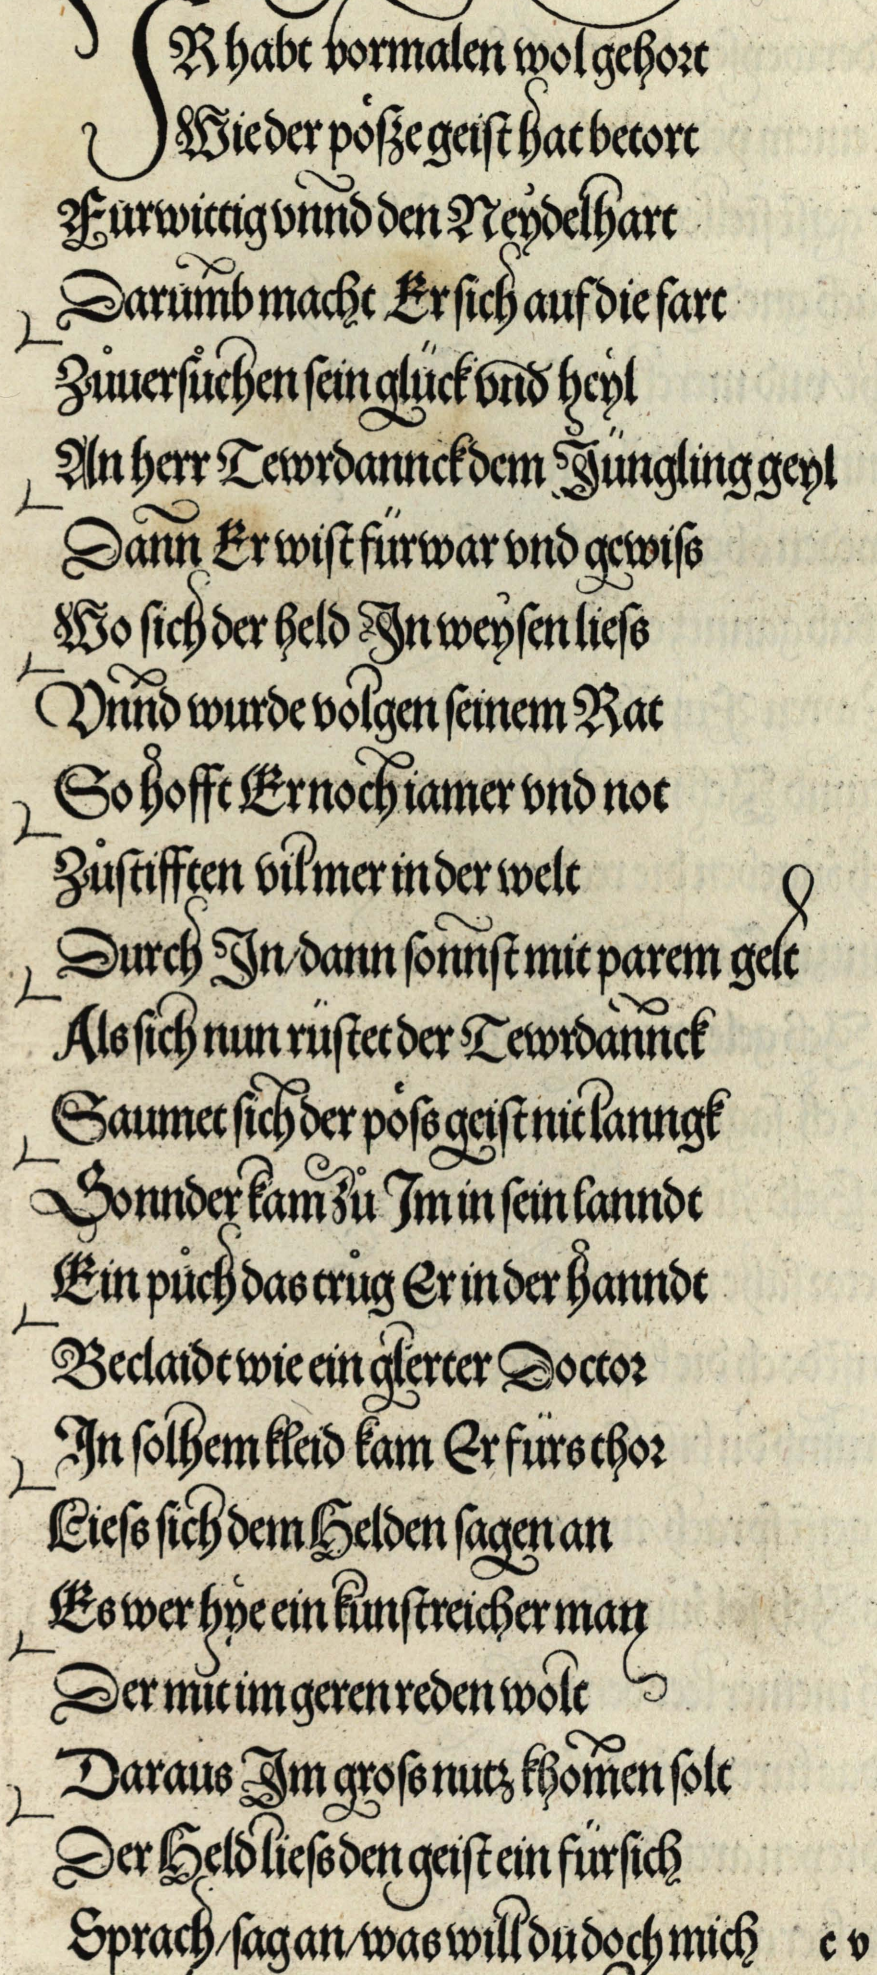 IR habt vormalen wol gehort
Wie der pöſʒe geiſt hat betort
Furwittig vnnd den Neydelhart
Darumb macht Er ſich auf die fart
Zůuerſůchen ſein glück vnd heyl
An herr Tewrdannck dem Jüngling geyl
Dann Er wiſt fürwar vnd gewiſs
Wo ſich der held In weyſen lieſs
Vnnd wurde volgen ſeinem Rat
So hofft Er noch iamer vnd not
Zůſtifften vil mer in der welt
Durch In/dann ſonnſt mit parem gelt
Als ſich nun rüſtet der Tewrdannck
Saumet ſich der pöſs geiſt nit lanngk
Sonnder kam zů Im in ſein lanndt
Ein půch das trůg Er in der hanndt
Beclaidt wie ein glerter Doctor
In ſolhem kleid kam Er fürs thor
Lieſs ſich dem Helden ſagen an
Es wer hye ein kunſtreicher man
Der mit im geren reden wolt
Daraus Im groſs nutz khomen ſolt
Der Held lieſs den geiſt ein für ſich
Sprach/ſag an/was will du doch mich c v